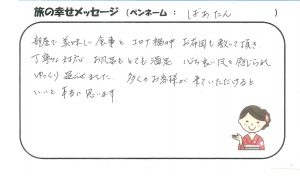 旅の幸せメッセージ（ペンネーム：ばあたん）
部屋で美味しい食事とコロナ禍の中お布団も敷いて頂き
丁寧な対応 お風呂もとても満足 心地良い風を感じられ
ゆっくり過ごせました。多くのお客様が来ていただけると
いいと本当に思います